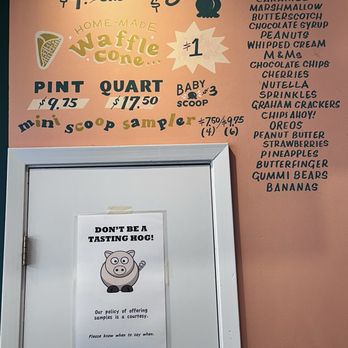 HOME-MADE
Waffle
Cone...
$1
PINT
$9.75
QUART
$17.50
BABY
SCOOP
$3
mini scoop sampler
$7.50
(4)
$9.75
(6)
MARSHMALLOW
BUTTERSCOTCH
CHOCOLATE SYRUP
PEANUTS
WHIPPED CREAM
M&Ms
CHOCOLATE CHIPS
CHERRIES
NUTELLA
SPRINKLES
GRAHAM CRACKERS
CHIPS AHOY!
OREOS
PEANUT BUTTER
STRAWBERRIES
PINEAPPLES
BUTTERFINGER
GUMMI BEARS
BANANAS
DON'T BE A
TASTING HOG!
Our policy of offering
samples is a courtesy.
Please know when to say when.